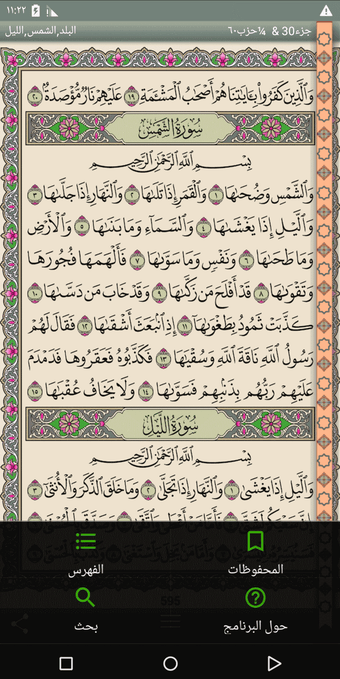 ١١:٢٢
البلد,الشمس,الليل
جزء30 & ¼حزب٦٠
وَالَّذِينَ كَفَرُوا بِـَٔايَـٰتِنَا هُمْ أَصْحَـٰبُ الْمَشْـَٔمَةِ ١٩ عَلَيْهِمْ نَارٌ مُّؤْصَدَةٌ ٢٠
سُورَةُ الشَّمْسِ
بِسْمِ اللَّهِ الرَّحْمَـٰنِ الرَّحِيمِ
وَالشَّمْسِ وَضُحَىٰهَا ١ وَالْقَمَرِ إِذَا تَلَىٰهَا ٢ وَالنَّهَارِ إِذَا جَلَّىٰهَا ٣
وَالَّيْلِ إِذَا يَغْشَىٰهَا ٤ وَالسَّمَآءِ وَمَا بَنَىٰهَا ٥ وَالْأَرْضِ
وَمَا طَحَىٰهَا ٦ وَنَفْسٍ وَمَا سَوَّىٰهَا ٧ فَأَلْهَمَهَا فُجُورَهَا
وَتَقْوَىٰهَا ٨ قَدْ أَفْلَحَ مَن زَكَّىٰهَا ٩ وَقَدْ خَابَ مَن دَسَّىٰهَا ١٠
كَذَّبَتْ ثَمُودُ بِطَغْوَىٰهَآ ١١ إِذِ انۢبَعَثَ أَشْقَىٰهَا ١٢ فَقَالَ لَهُمْ
رَسُولُ اللَّهِ نَاقَةَ اللَّهِ وَسُقْيَـٰهَا ١٣ فَكَذَّبُوهُ فَعَقَرُوهَا فَدَمْدَمَ
عَلَيْهِمْ رَبُّهُم بِذَنۢبِهِمْ فَسَوَّىٰهَا ١٤ وَلَا يَخَافُ عُقْبَـٰهَا ١٥
سُورَةُ اللَّيْلِ
بِسْمِ اللَّهِ الرَّحْمَـٰنِ الرَّحِيمِ
وَالَّيْلِ إِذَا يَغْشَىٰ ١ وَالنَّهَارِ إِذَا تَجَلَّىٰ ٢ وَمَا خَلَقَ الذَّكَرَ وَالْأُنثَىٰٓ ٣
المحفوظات
الفهرس
595
حول البرنامج
بحث